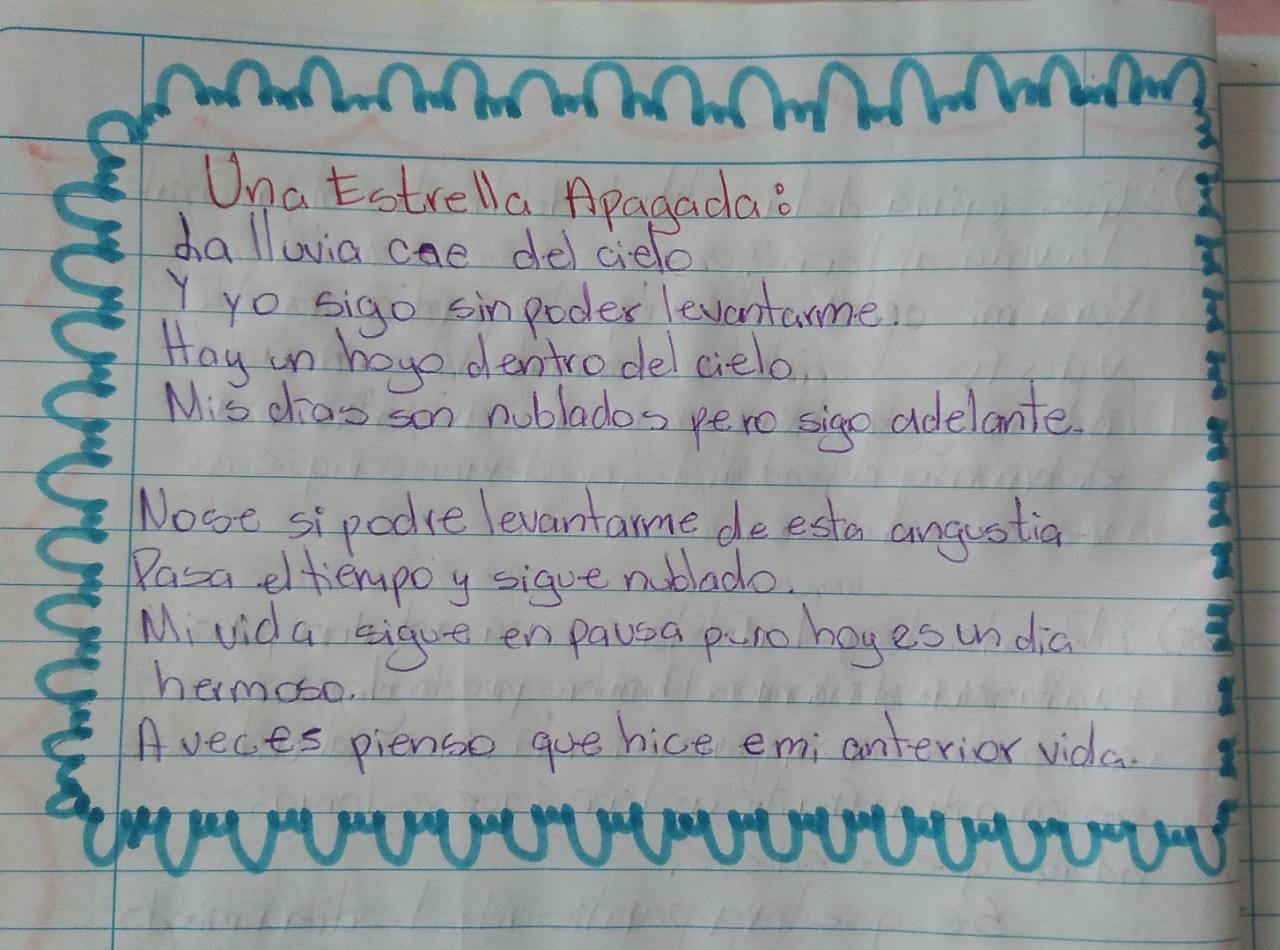 Una Estrella Apagada:
La lluvia cae del cielo
Y yo sigo sin poder levantarme.
Hay un hoyo dentro del cielo.
Mis días son nublados pero sigo adelante.
Nose si podre levantarme de esta angustia
Pasa el tiempo y sigue nublado.
Mi vida sigue en pausa pero hoy es un dia
hermoso.
A veces pienso que hice e mi anterior vida.